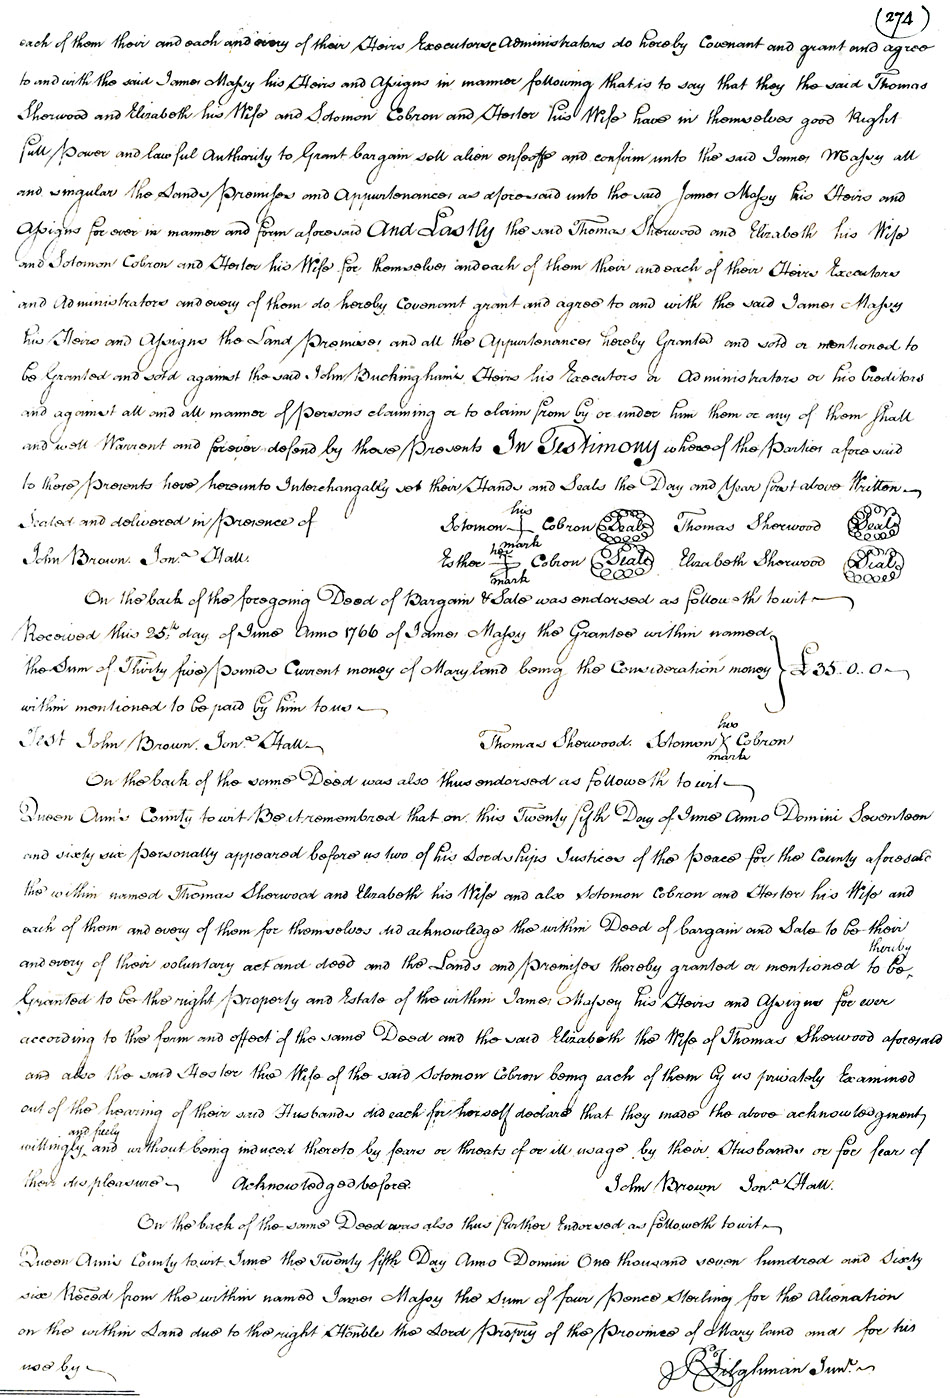 (274)
each of them their and each and every of their Heirs Executors & Administrators do hereby Covenant and grant and agree
to and with the said James Massy his Heirs and Assigns in manner following that is to say that they the said Thomas
Sherwood and Elizabeth his Wife and Solomon Cobron and Hester his Wife have in themselves good Right
full Power and lawful Authority to Grant bargain sell alien enfeoffe and confirm unto the said James Massy all
and singular the Lands Premises and Appurtenances as aforesaid unto the said James Massy his Heirs and
Assigns for ever in manner and form aforesaid And Lastly the said Thomas Sherwood and Elizabeth his Wife
and Solomon Cobron and Hester his Wife for themselves and each of them their and each of their Heirs Executors
and Administrators and every of them do hereby Covenant grant and agree to and with the said James Massy
his Heirs and Assigns the Land Premises and all the Appurtenances hereby Granted and sold or mentioned to
be Granted and sold against the said John Buckingham's Heirs his Executors or Administrators or his Creditors
and against all and all manner of Persons claiming or to claim from by or under him them or any of them shall
and well Warrent and forever defend by these Presents In Testimony whereof the Parties afore said
to these Presents have hereunto Interchangally set their Hands and Seals the Day and Year first above Written
Sealed and delivered in Presence of Solomon his mark Cobron Seal Thomas Sherwood Seal
John Brown. Jon.a Hall. Esther her mark Cobron Seal Elizabeth Sherwood Seal
On the back of the foregoing Deed of Bargain & Sale was endorsed as followeth to wit
Received this 25.th day of June Anno 1766 of James Massy the Grantee within named
the Sum of Thirty five Pounds Current money of Maryland being the Consideration money } £35..0..0
within mentioned to be paid by him to us
Test John Brown. Jon.a Hall Thomas Sherwood. Solomon his X mark Cobron
On the back of the same Deed was also thus endorsed as followeth to wit
Queen Ann's County to wit Be it remembred that on this Twenty fifth Day of June Anno Domini Seventeen
and sixty six Personally appeared before us two of his Lordships Justices of the Peace for the County aforesaid
the within named Thomas Sherwood and Elizabeth his Wife and also Solomon Cobron and Hester his Wife and
each of them and every of them for themselves did acknowledge the within Deed of bargain and Sale to be their
and every of their voluntary act and deed and the Lands and Premises thereby granted or mentioned to be thereby
Granted to be the right Property and Estate of the within James Massey his Heirs and Assigns for ever
according to the form and effect of the same Deed and the said Elizabeth the Wife of Thomas Sherwood aforesaid
and also the said Hester the Wife of the said Solomon Cobron being each of them by us privately Examined
out of the hearing of their said Husbands did each for herself declare that they made the above acknowledgment
willingly and freely and without being induced thereto by fears or threats of or ill usage by their Husbands or for fear of
their displeasure Acknowledged before. John Brown Jon.a Hall.
On the back of the same Deed was also thus further Endorsed as followeth to wit
Queen Ann's County to wit June the Twenty fifth Day Anno Domini One thousand seven hundred and Sixty
six Reced from the within named James Massy the Sum of four Pence Sterling for the Alienation
on the within Land due to the right Honble the Lord Propry of the Province of Maryland and for his
use by R. Tilghman Junr.